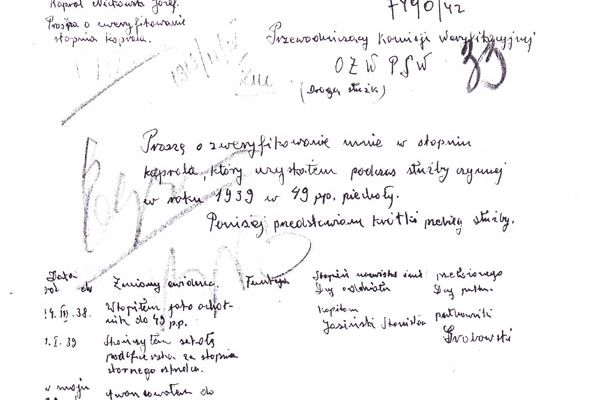 Kapral Wickowski Józef.
7490/42
Prośba o zweryfikowanie
stopnia kaprala.
Przewodniczący Komisji Weryfikacyjnej
OZW PSW
33
(Drogą służb.)
Proszę o zweryfikowanie mnie w stopniu
kaprala, który uzyskałem podczas służby czynnej
w roku 1939 w 49 pp. piechoty.
Poniżej przedstawiam krótki przebieg służby.
Data
od do
Zmiany ewidenc.
Funkcja
Stopień nazwisko imię przełożonego
Dcy oddziału
Dcy pułku.
14.III.38.
Wstąpiłem jako ochot-
nik do 49 p.p.
kapitan
Jasiński Stanisław
pułkownik
Grabowski
1.I.39
Skończyłem szkołę
podoficerską ze stopniem
starszego strzelca.
w maju
awansowałem do